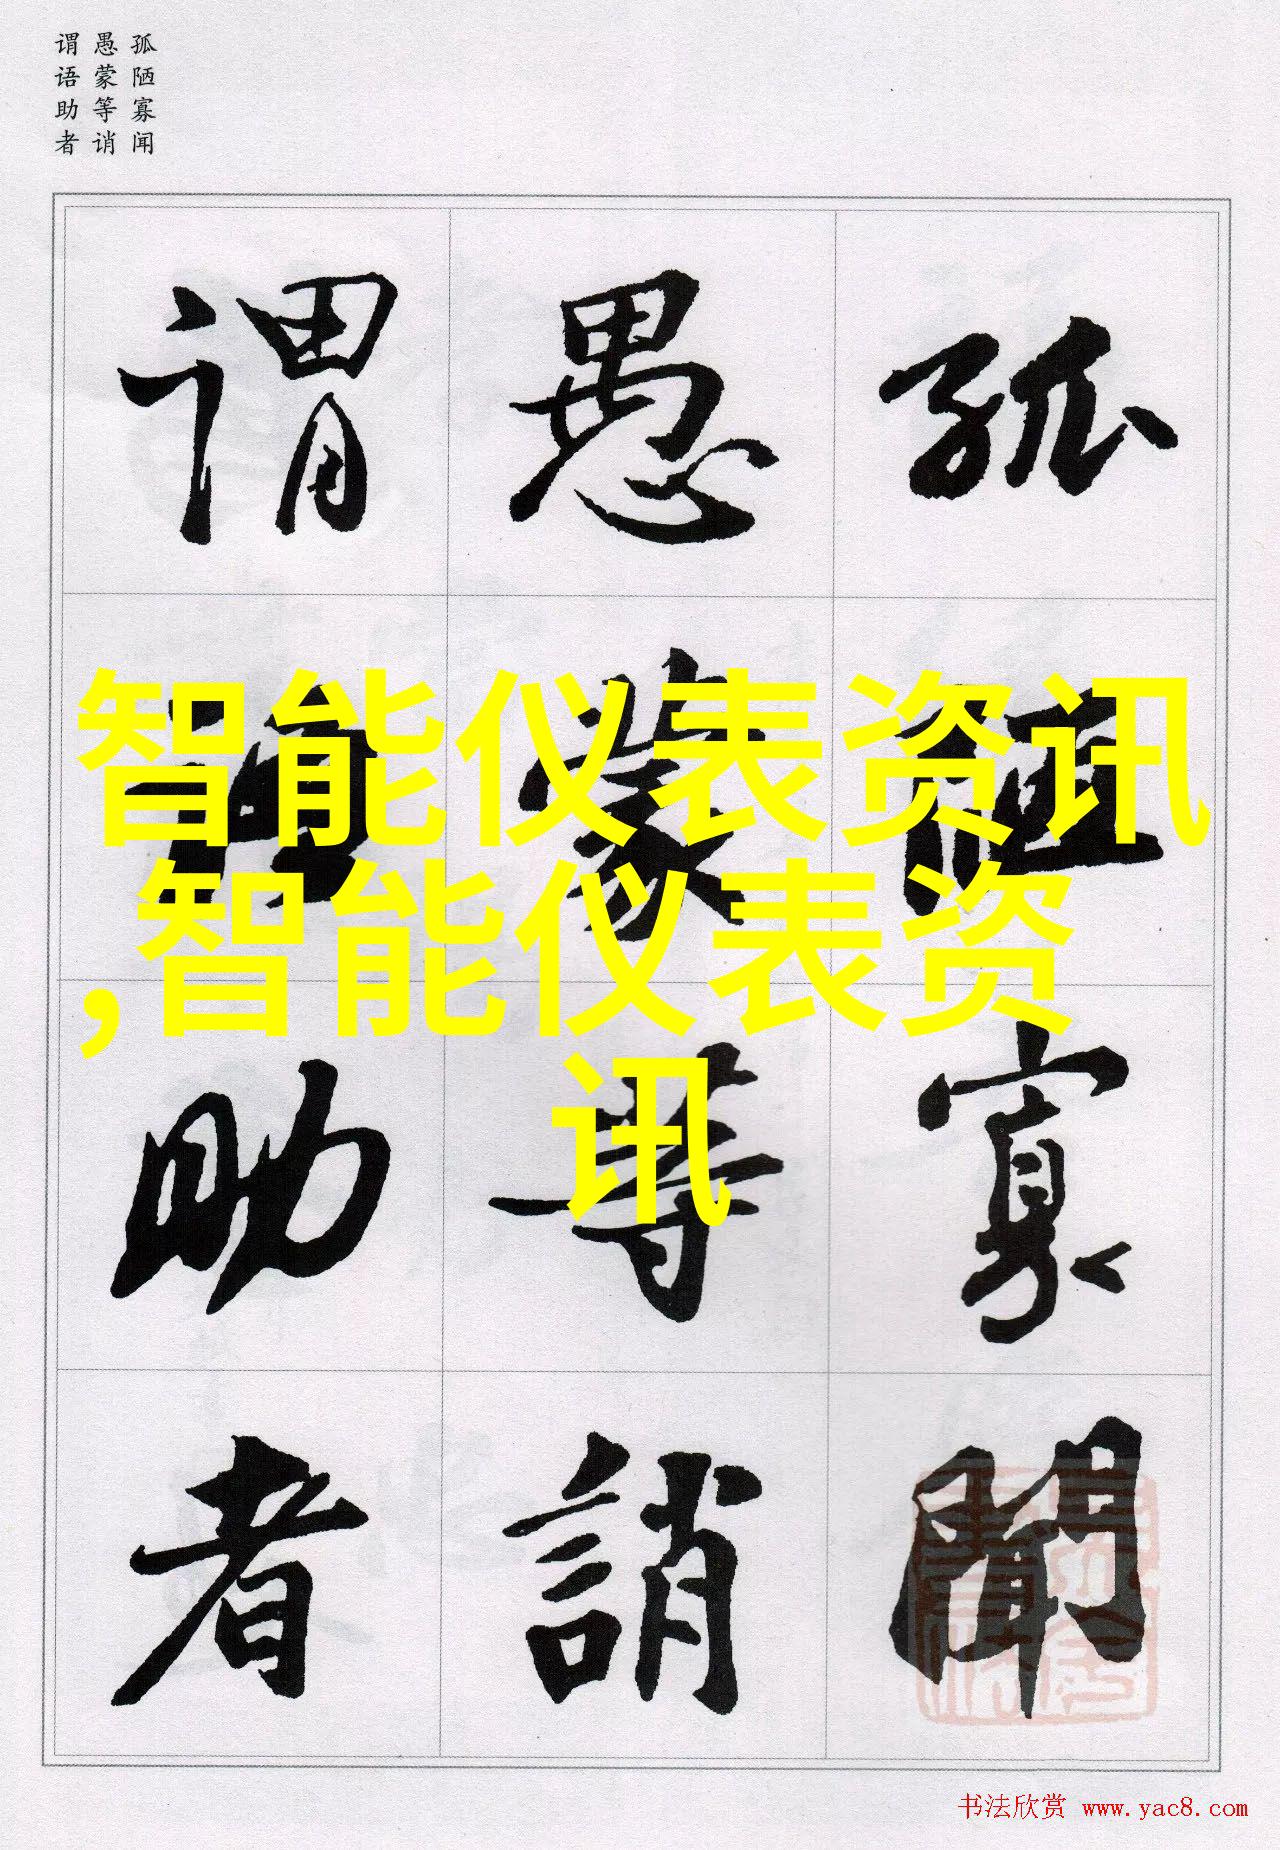 孤陋寡闻
愚蒙等诮
谓语助者
孤陋寡聞
愚蒙等誚
谓语助者
智能仪表资讯
,智能仪表资
讯
书法欣赏 www.yac8.com